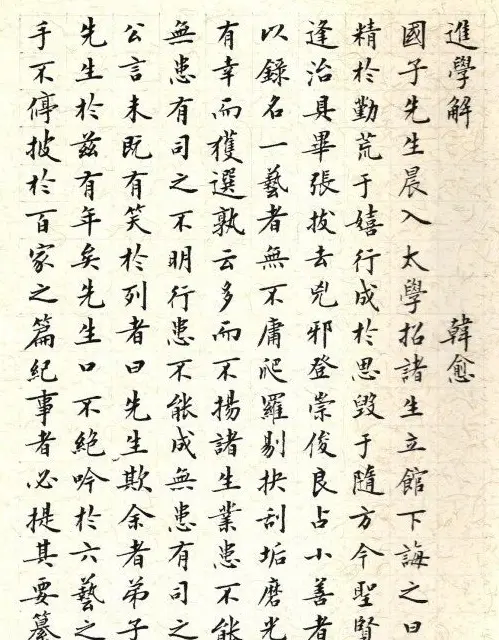 進學解 韓愈
國子先生晨入太學招諸生立館下誨之曰
精於勤荒于嬉行成於思毀于隨方今聖賢
逢治具畢張拔去兇邪登崇俊良占小善者
以錄名一藝者無不庸爬羅剔抉刮垢磨光
有幸而獲選孰云多而不揚諸生業患不能
無患有司之不明行患不能成無患有司之
公言未既有笑於列者曰先生欺余者弟子
先生於茲有年矣先生口不絕吟於六藝之
手不停披於百家之篇紀事者必提其要纂